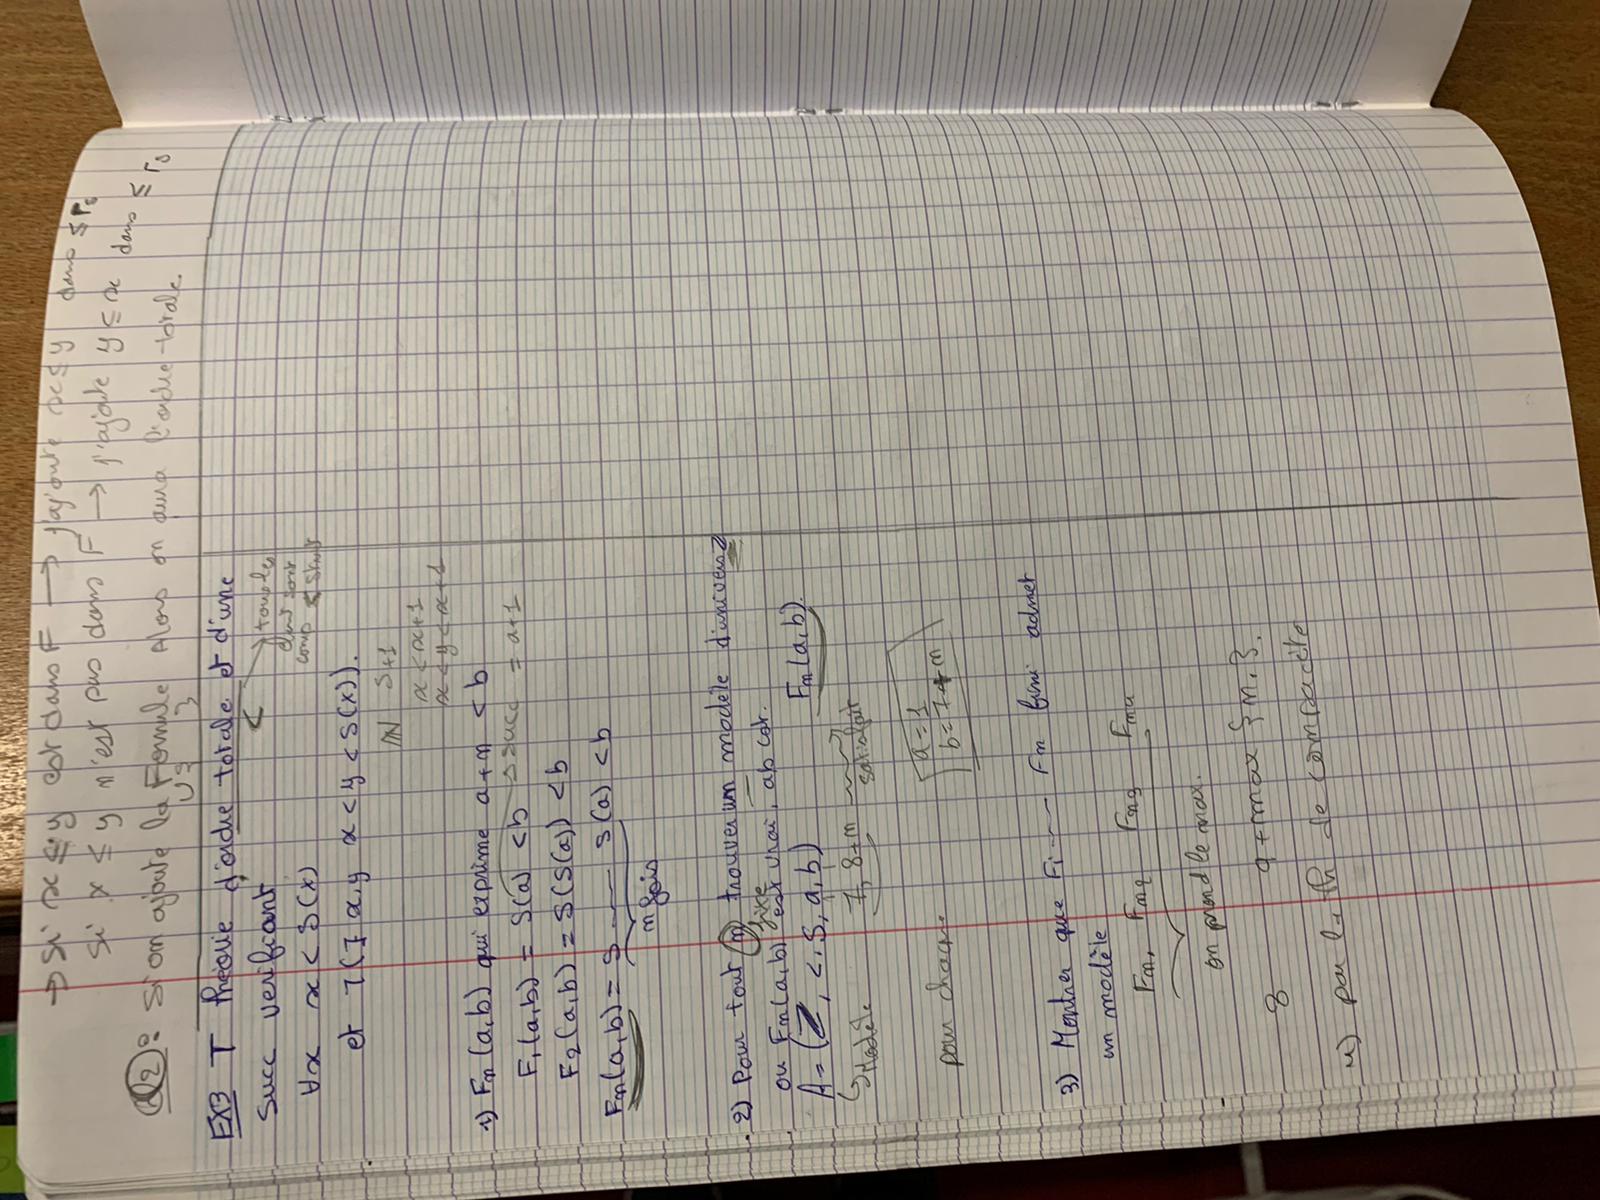 → Si x ≤ y est dans F → j'ajoute x ≤ y dans ≤ Γ0
Si x ≤ y n'est pas dans F → j'ajoute y ≤ x dans ≤ Γ0
Q2: Si on ajoute la Formule Alors on aura l'ordre totale.
EX3 T théorie d'ordre totale et d'une
<
→ tous les
Succ verifiant
∀x x < S(x)
et ¬(∃x,y x < y < S(x)).
IN S+1
x < x+1
x < y < x+1
1) Fn(a,b) qui exprime a+n < b
F1(a,b) = S(a) < b → succ = a+1
F2(a,b) = S(S(a)) < b
Fn(a,b) = S — S(a) < b
n fois
2) Pour tout n trouver un modèle d'univers Z
fixe
ou Fn(a,b) est vrai, ab cst.
A = (Z, <, S, a, b) Fn(a,b).
↳ Modèle 7, 8+n satisfait
pour chaque
a = 1
3) Montrer que Fi — Fn fini admet
un modèle
Fn1 Fn2 Fn3 Fn4
on prend le max.
8 9+max {n.}.
4) par le th de compacité